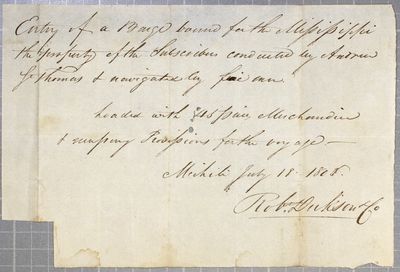 Entry of a Barge bound for the Mississippi
the property of the Subscribers conducted by Andrew
St Thomas & navigated by five men
loaded with Merchandise
& necessary Provisions for the voyage —
July 18 1808.
Robt Dickson & Co